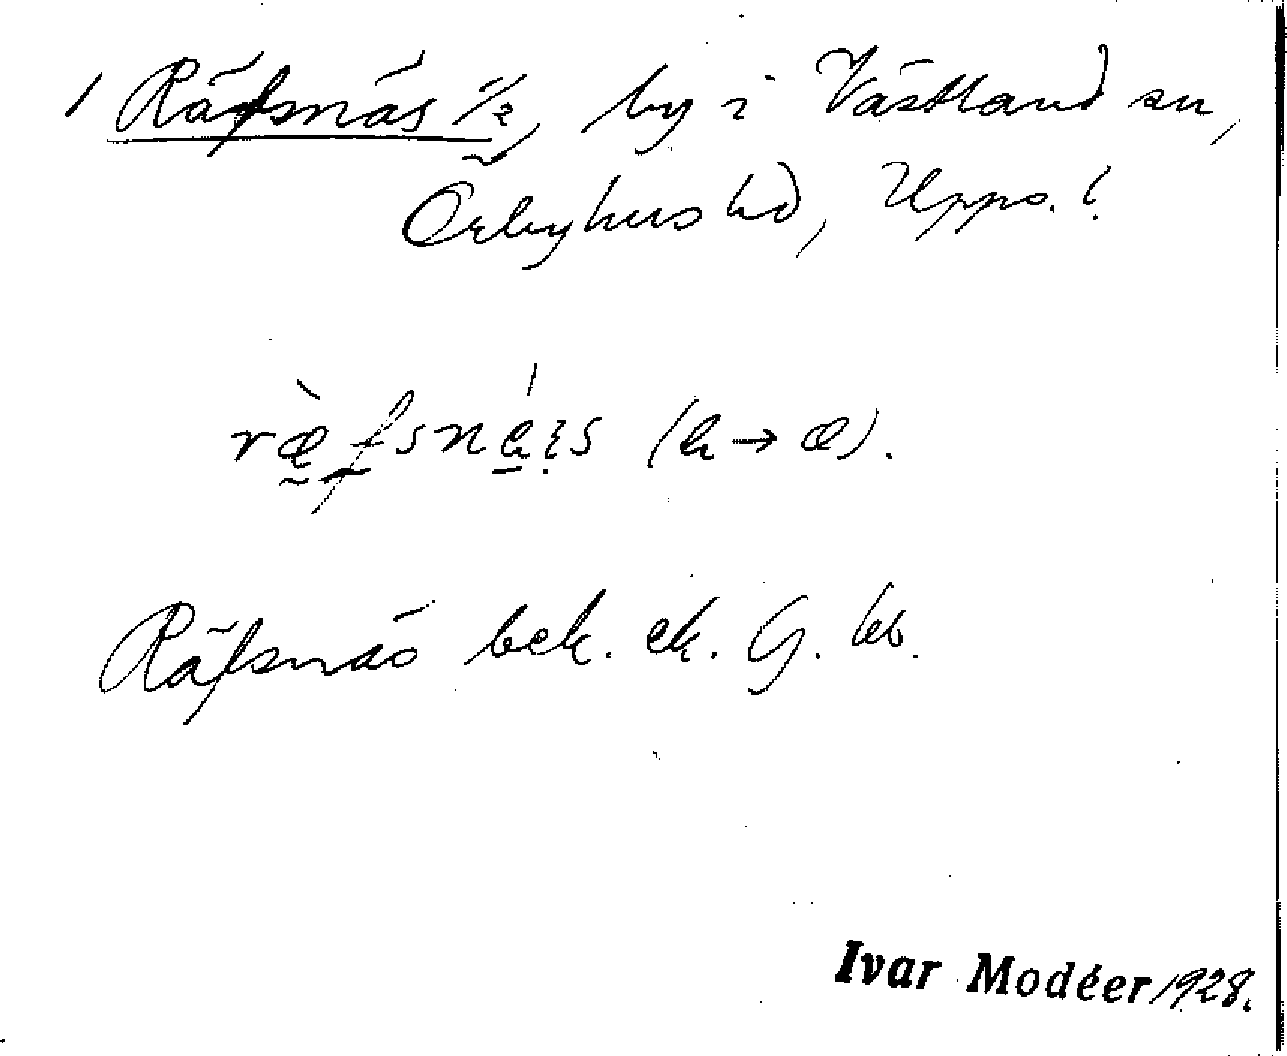 / Räfsnäs 1/2, by i Västland sn,
Örbyhus hd, Upps. l.
ræ̀fsnä́is (ä→æ).
Räfsnäs bek. ek. G. kb.
Ivar Modéer 1928.